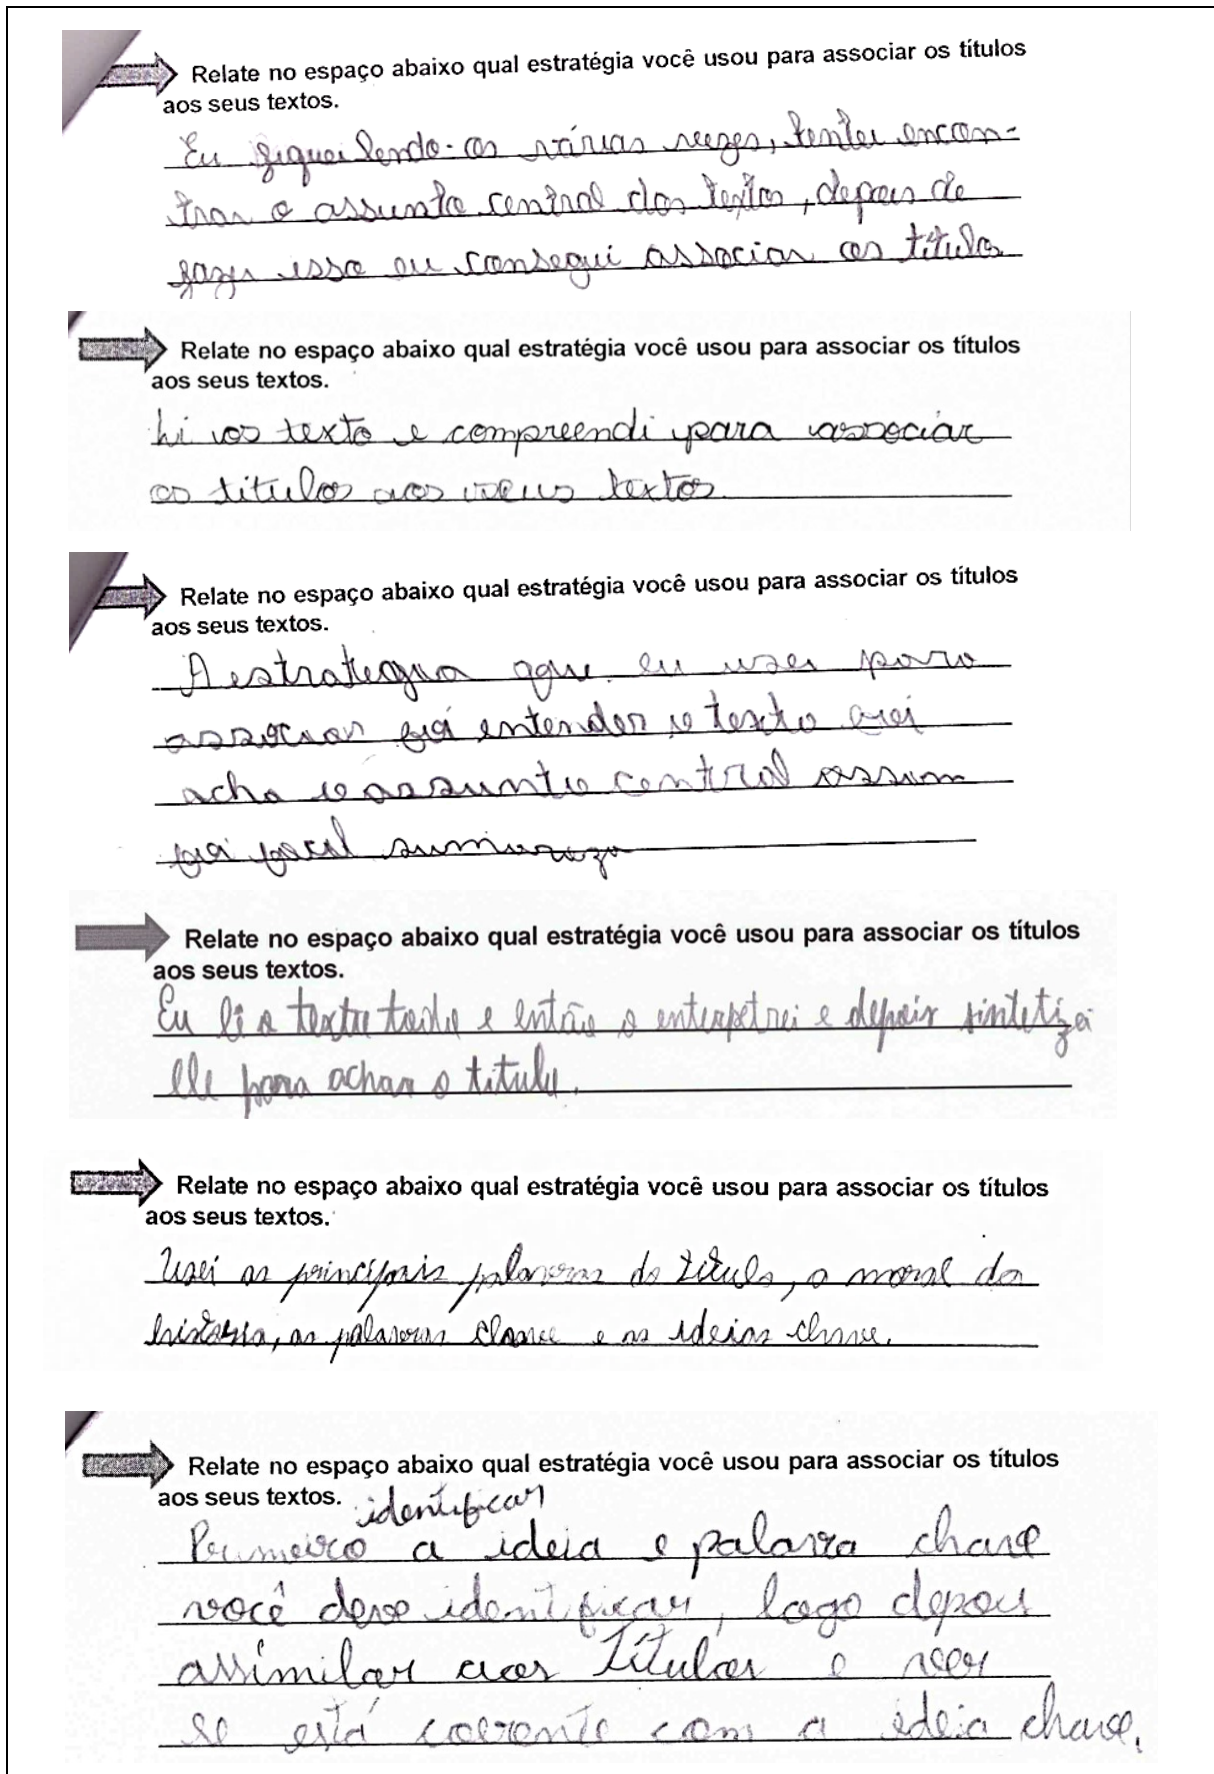 Relate no espaço abaixo qual estratégia você usou para associar os títulos
aos seus textos.
Eu fiquei lendo-os várias vezes, tentei encon-
trar o assunto central dos textos, depois de
fazer isso eu consegui associar os título
Relate no espaço abaixo qual estratégia você usou para associar os títulos
aos seus textos.
Li os texto e compreendi para associar
os titulos aos seus textos.
Relate no espaço abaixo qual estratégia você usou para associar os títulos
aos seus textos.
A estrategia que eu usei para
associar foi entender o texto
acha o assunto central assim
foi
Relate no espaço abaixo qual estratégia você usou para associar os títulos
aos seus textos.
Eu li o texto todo e então o enterpetrei e depois sintetizei
ele para achar o titulo.
Relate no espaço abaixo qual estratégia você usou para associar os títulos
aos seus textos.
Usei as principais palavras do título, a moral da
história, as palavras chave e as ideias chave.
Relate no espaço abaixo qual estratégia você usou para associar os títulos
aos seus textos.
identificar
Primeiro a ideia e palavra chave
você deve identificar, logo depois
assimilar aos Títulos e ver
se está coerente com a ideia chave.